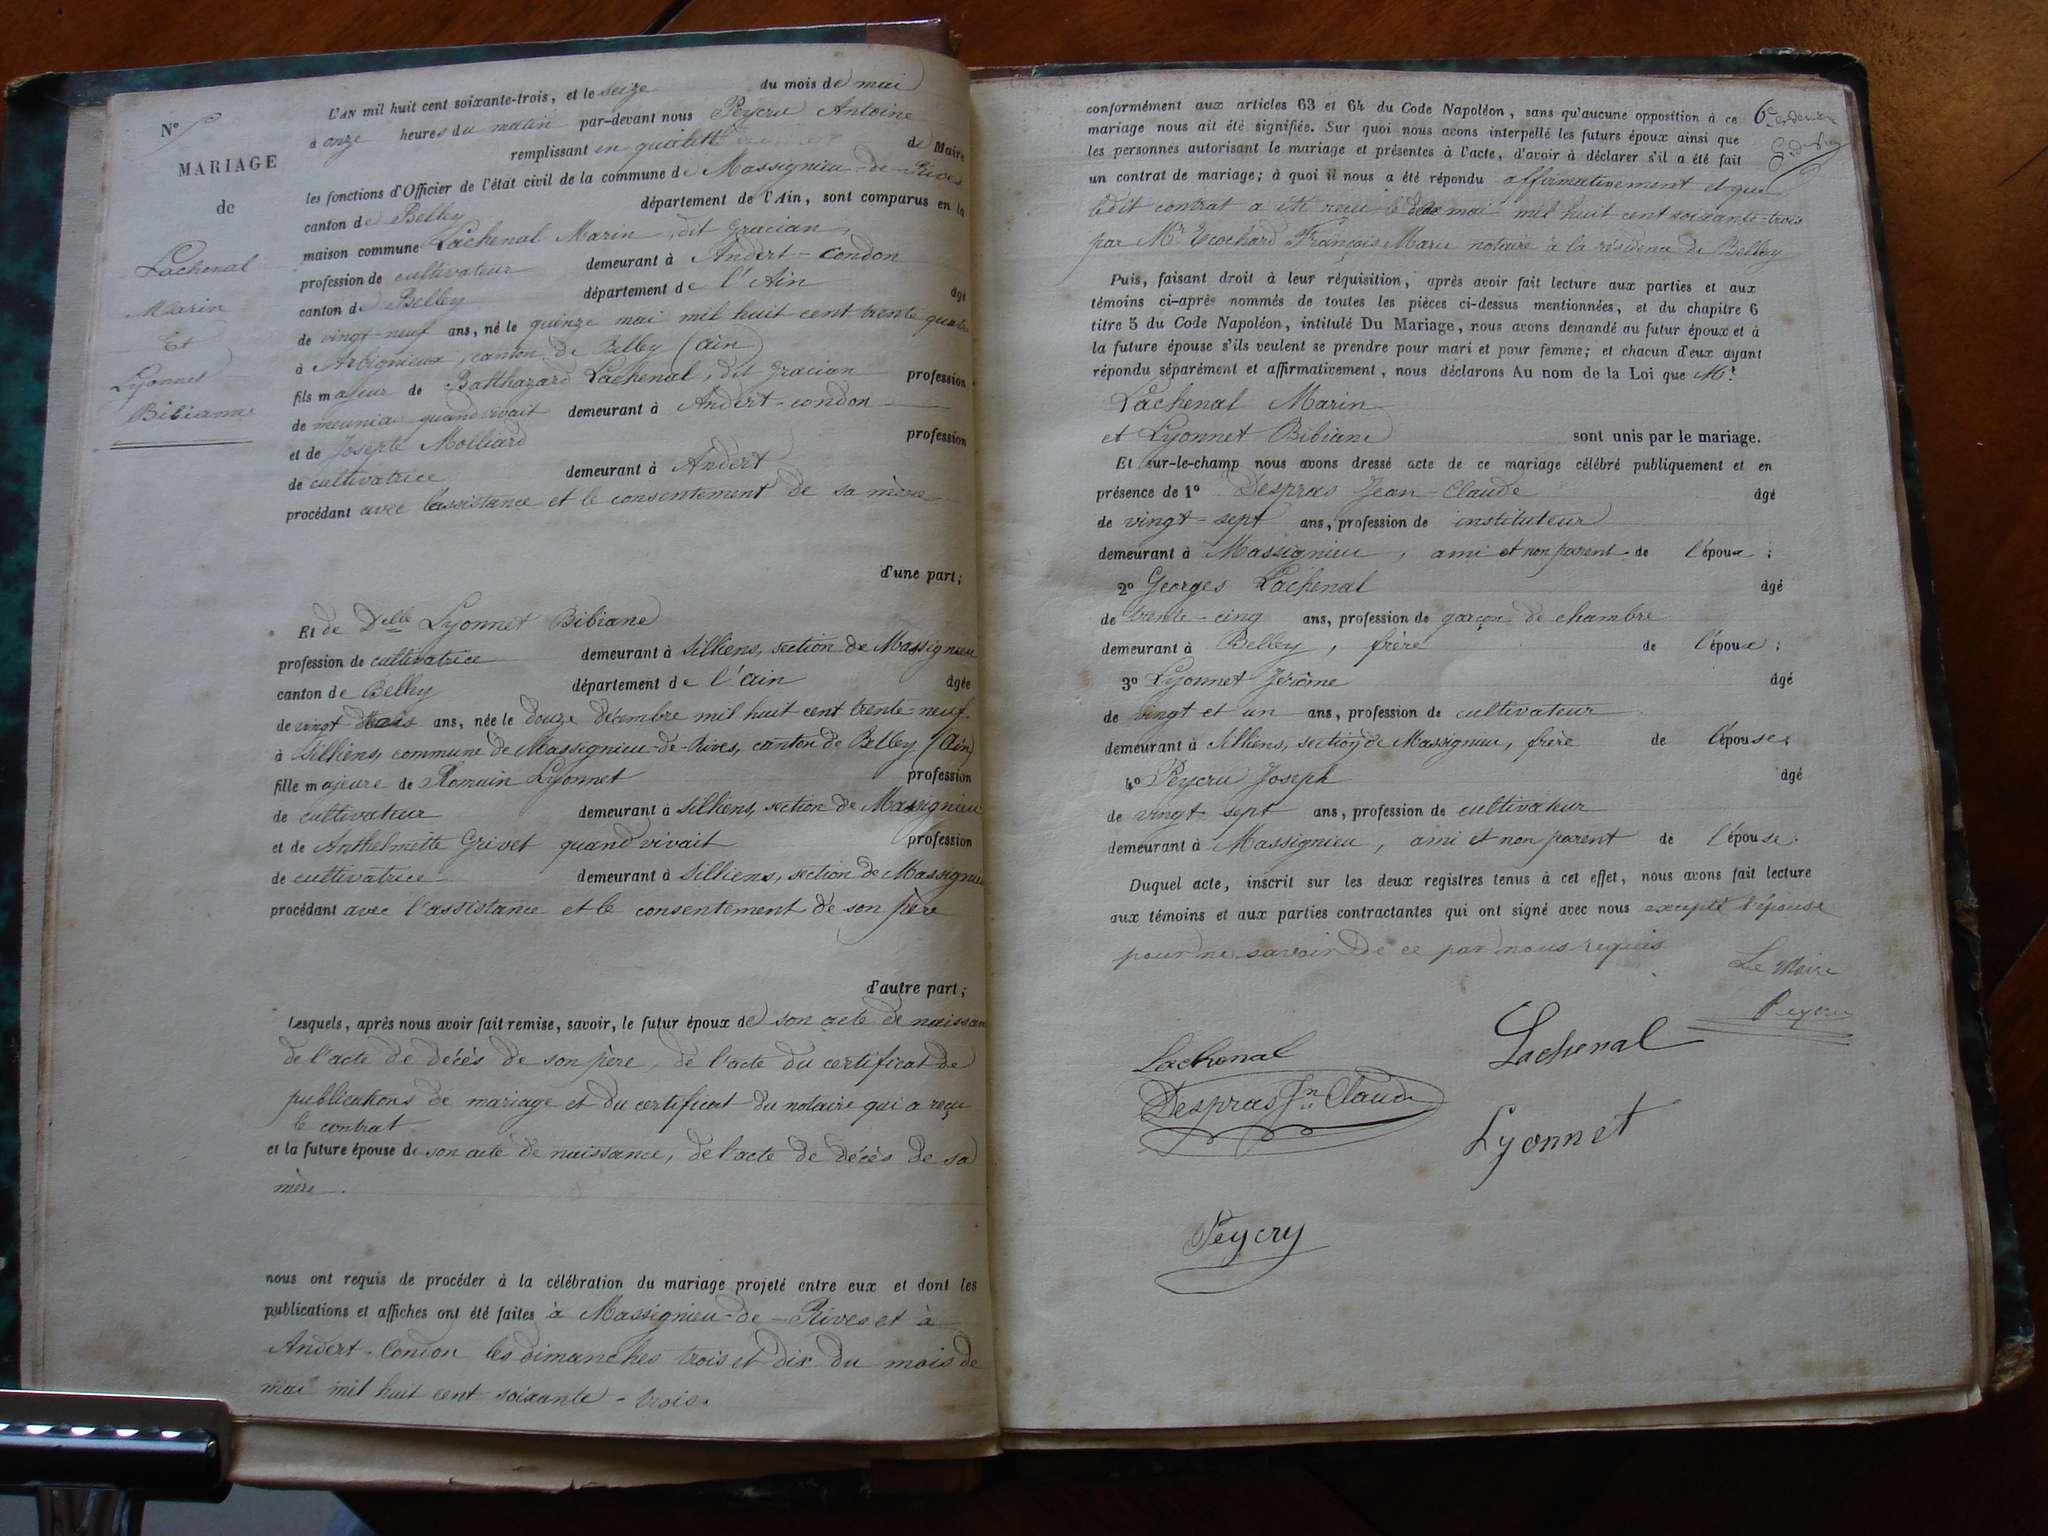 N°
MARIAGE
de
Lachenal
Marin
Et
Lyonnet
Bibianne
L'AN mil huit cent soixante-trois, et le seize du mois de mai
à onze heures du matin par-devant nous Peycru Antoine
remplissant en qualité de Maire
les fonctions d'Officier de l'état civil de la commune de Massignieu-de-Rives
canton de Belley département de l'Ain, sont comparus en la
maison commune Lachenal Marin, dit Gracian,
profession de cultivateur demeurant à Andert-Condon
canton de Belley département de l'Ain âgé
de vingt-neuf ans, né le quinze mai mil huit cent trente quatre
à Arbignieux, canton de Belley (Ain)
fils majeur de Balthazard Lachenal, dit Gracian profession
de meunier quand vivait demeurant à Andert-condon
et de Josepte Molliard profession
de cultivatrice demeurant à Andert
procédant avec l'assistance et le consentement de sa mère
d'une part;
Et de Delle Lyonnet Bibiane
profession de cultivatrice demeurant à Silliens, section de Massignieu
canton de Belley département de l'Ain âgée
de vingt trois ans, née le douze décembre mil huit cent trente-neuf
à Silliens, commune de Massignieu-de-Rives, canton de Belley (Ain)
fille majeure de Romain Lyonnet profession
de cultivateur demeurant à Silliens, section de Massignieu
et de Anthelmette Grivet quand vivait profession
de cultivatrice demeurant à Silliens, section de Massignieu
procédant avec l'assistance et le consentement de son père
d'autre part;
Lesquels, après nous avoir fait remise, savoir, le futur époux de son acte de naissan
de l'acte de décès de son père, de l'acte du certificat de
publications de mariage et du certificat du notaire qui a reçu
le contrat
et la future épouse de son acte de naissance, de l'acte de décès de sa
mère.
nous ont requis de procéder à la célébration du mariage projeté entre eux et dont les
publications et affiches ont été faites à Massignieu-de-Rives et à
Andert-Condon les dimanches trois et dix du mois de
mai mil huit cent soixante-trois.
conformément aux articles 63 et 64 du Code Napoléon, sans qu'aucune opposition à ce
mariage nous ait été signifiée. Sur quoi nous avons interpellé les futurs époux ainsi que
les personnes autorisant le mariage et présentes à l'acte, d'avoir à déclarer s'il a été fait
un contrat de mariage; à quoi il nous a été répondu affirmativement et que
ledit contrat a été reçu le mai mil huit cent soixante-trois
par Mr François Marie notaire à la résidence de Belley
Puis, faisant droit à leur réquisition, après avoir fait lecture aux parties et aux
témoins ci-après nommés de toutes les pièces ci-dessus mentionnées, et du chapitre 6
titre 5 du Code Napoléon, intitulé Du Mariage, nous avons demandé au futur époux et à
la future épouse s'ils veulent se prendre pour mari et pour femme; et chacun d'eux ayant
répondu séparément et affirmativement, nous déclarons Au nom de la Loi que Mr
Lachenal Marin
et Lyonnet Bibiane sont unis par le mariage.
Et sur-le-champ nous avons dressé acte de ce mariage célébré publiquement et en
présence de 1° Despras Jean-Claude âgé
de vingt-sept ans, profession de instituteur
demeurant à Massignieu, ami et non parent de l'époux;
2° Georges Lachenal âgé
de trente-cinq ans, profession de garçon de chambre
demeurant à Belley, frère de l'époux;
3° Lyonnet Jérôme âgé
de vingt et un ans, profession de cultivateur
demeurant à Silliens, section de Massignieu, frère de l'épouse;
4° Peycru Joseph âgé
de vingt sept ans, profession de cultivateur
demeurant à Massignieu, ami et non parent de l'épouse.
Duquel acte, inscrit sur les deux registres tenus à cet effet, nous avons fait lecture
aux témoins et aux parties contractantes qui ont signé avec nous excepté l'épouse
pour ne savoir de ce par nous requis
Le Maire
Peycru
Lachenal
Lachenal
Despras Jn Claude
Lyonnet
Peycry